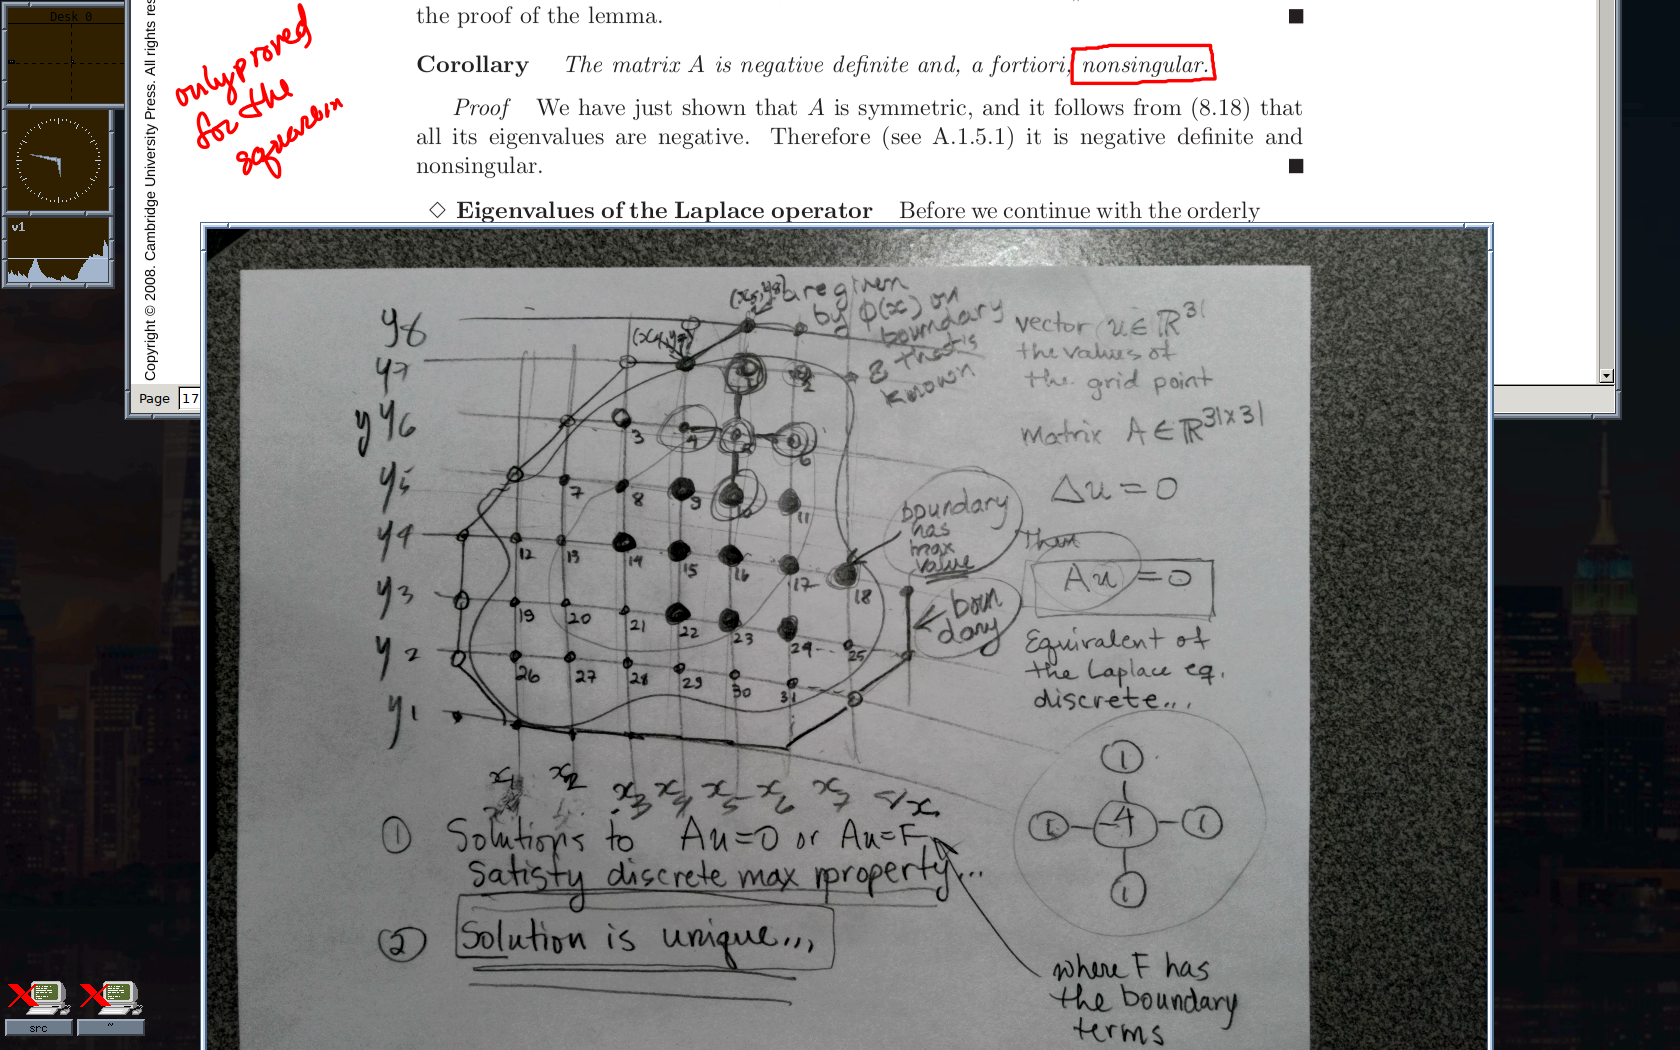 Desk 0
v1
Copyright © 2008. Cambridge University Press. All rights res
only proved
for the
square in
the proof of the lemma. ■
Corollary The matrix A is negative definite and, a fortiori, nonsingular.
Proof We have just shown that A is symmetric, and it follows from (8.18) that
all its eigenvalues are negative. Therefore (see A.1.5.1) it is negative definite and
nonsingular. ■
◇ Eigenvalues of the Laplace operator Before we continue with the orderly
Page 17
y8
y7
y
y6
y5
y4
y3
y2
y1
(x5,y8)
(x4,y7)
are given
by φ(x) on
boundary
& that is
known
vector u∈ℝ³¹
the values of
the grid point
matrix A∈ℝ³¹ˣ³¹
Δu=0
Then
Au=0
Equivalent of
the Laplace eq.
discrete...
boundary
has
max
value
boun
dary
2
3 4 5 6
7 8 9 10 11
12 13 14 15 16 17 18
19 20 21 22 23 24 25
26 27 28 29 30 31
x1 x2 x3 x4 x5 x6 x7 x
1
1 -4 1
1
① Solutions to Au=0 or Au=F
Satisfy discrete max property...
② Solution is unique...
where F has
the boundary
terms
src
~